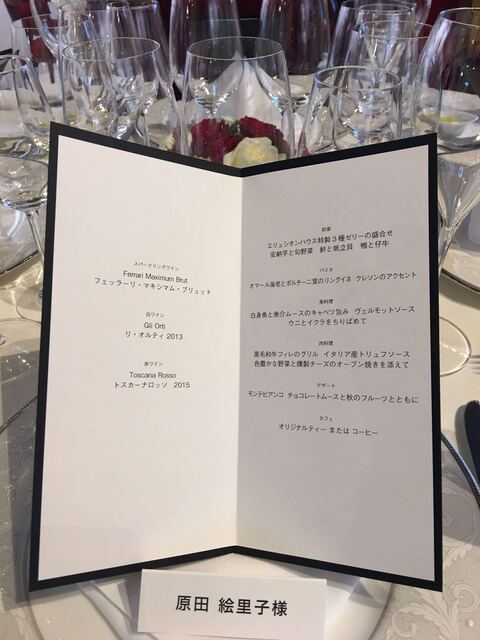 スパークリングワイン
Ferrari Maximum Brut
フェッラーリ・マキシマム・ブリュット
白ワイン
Gli Orti
リ・オルティ 2013
赤ワイン
Toscana Rosso
トスカーナロッソ 2015
前菜
エリュシオンハウス特製3種ゼリーの盛合せ
安納芋と旬野菜 鮃と帆立貝 鴨と仔牛
パスタ
オマール海老とポルチーニ茸のリングイネ クレソンのアクセント
魚料理
白身魚と魚介ムースのキャベツ包み ヴェルモットソース
ウニとイクラをちりばめて
肉料理
黒毛和牛フィレのグリル イタリア産トリュフソース
色豊かな野菜と燻製チーズのオーブン焼きを添えて
デザート
モンテビアンコ チョコレートムースと秋のフルーツとともに
カフェ
オリジナルティー または コーヒー
原田 絵里子様